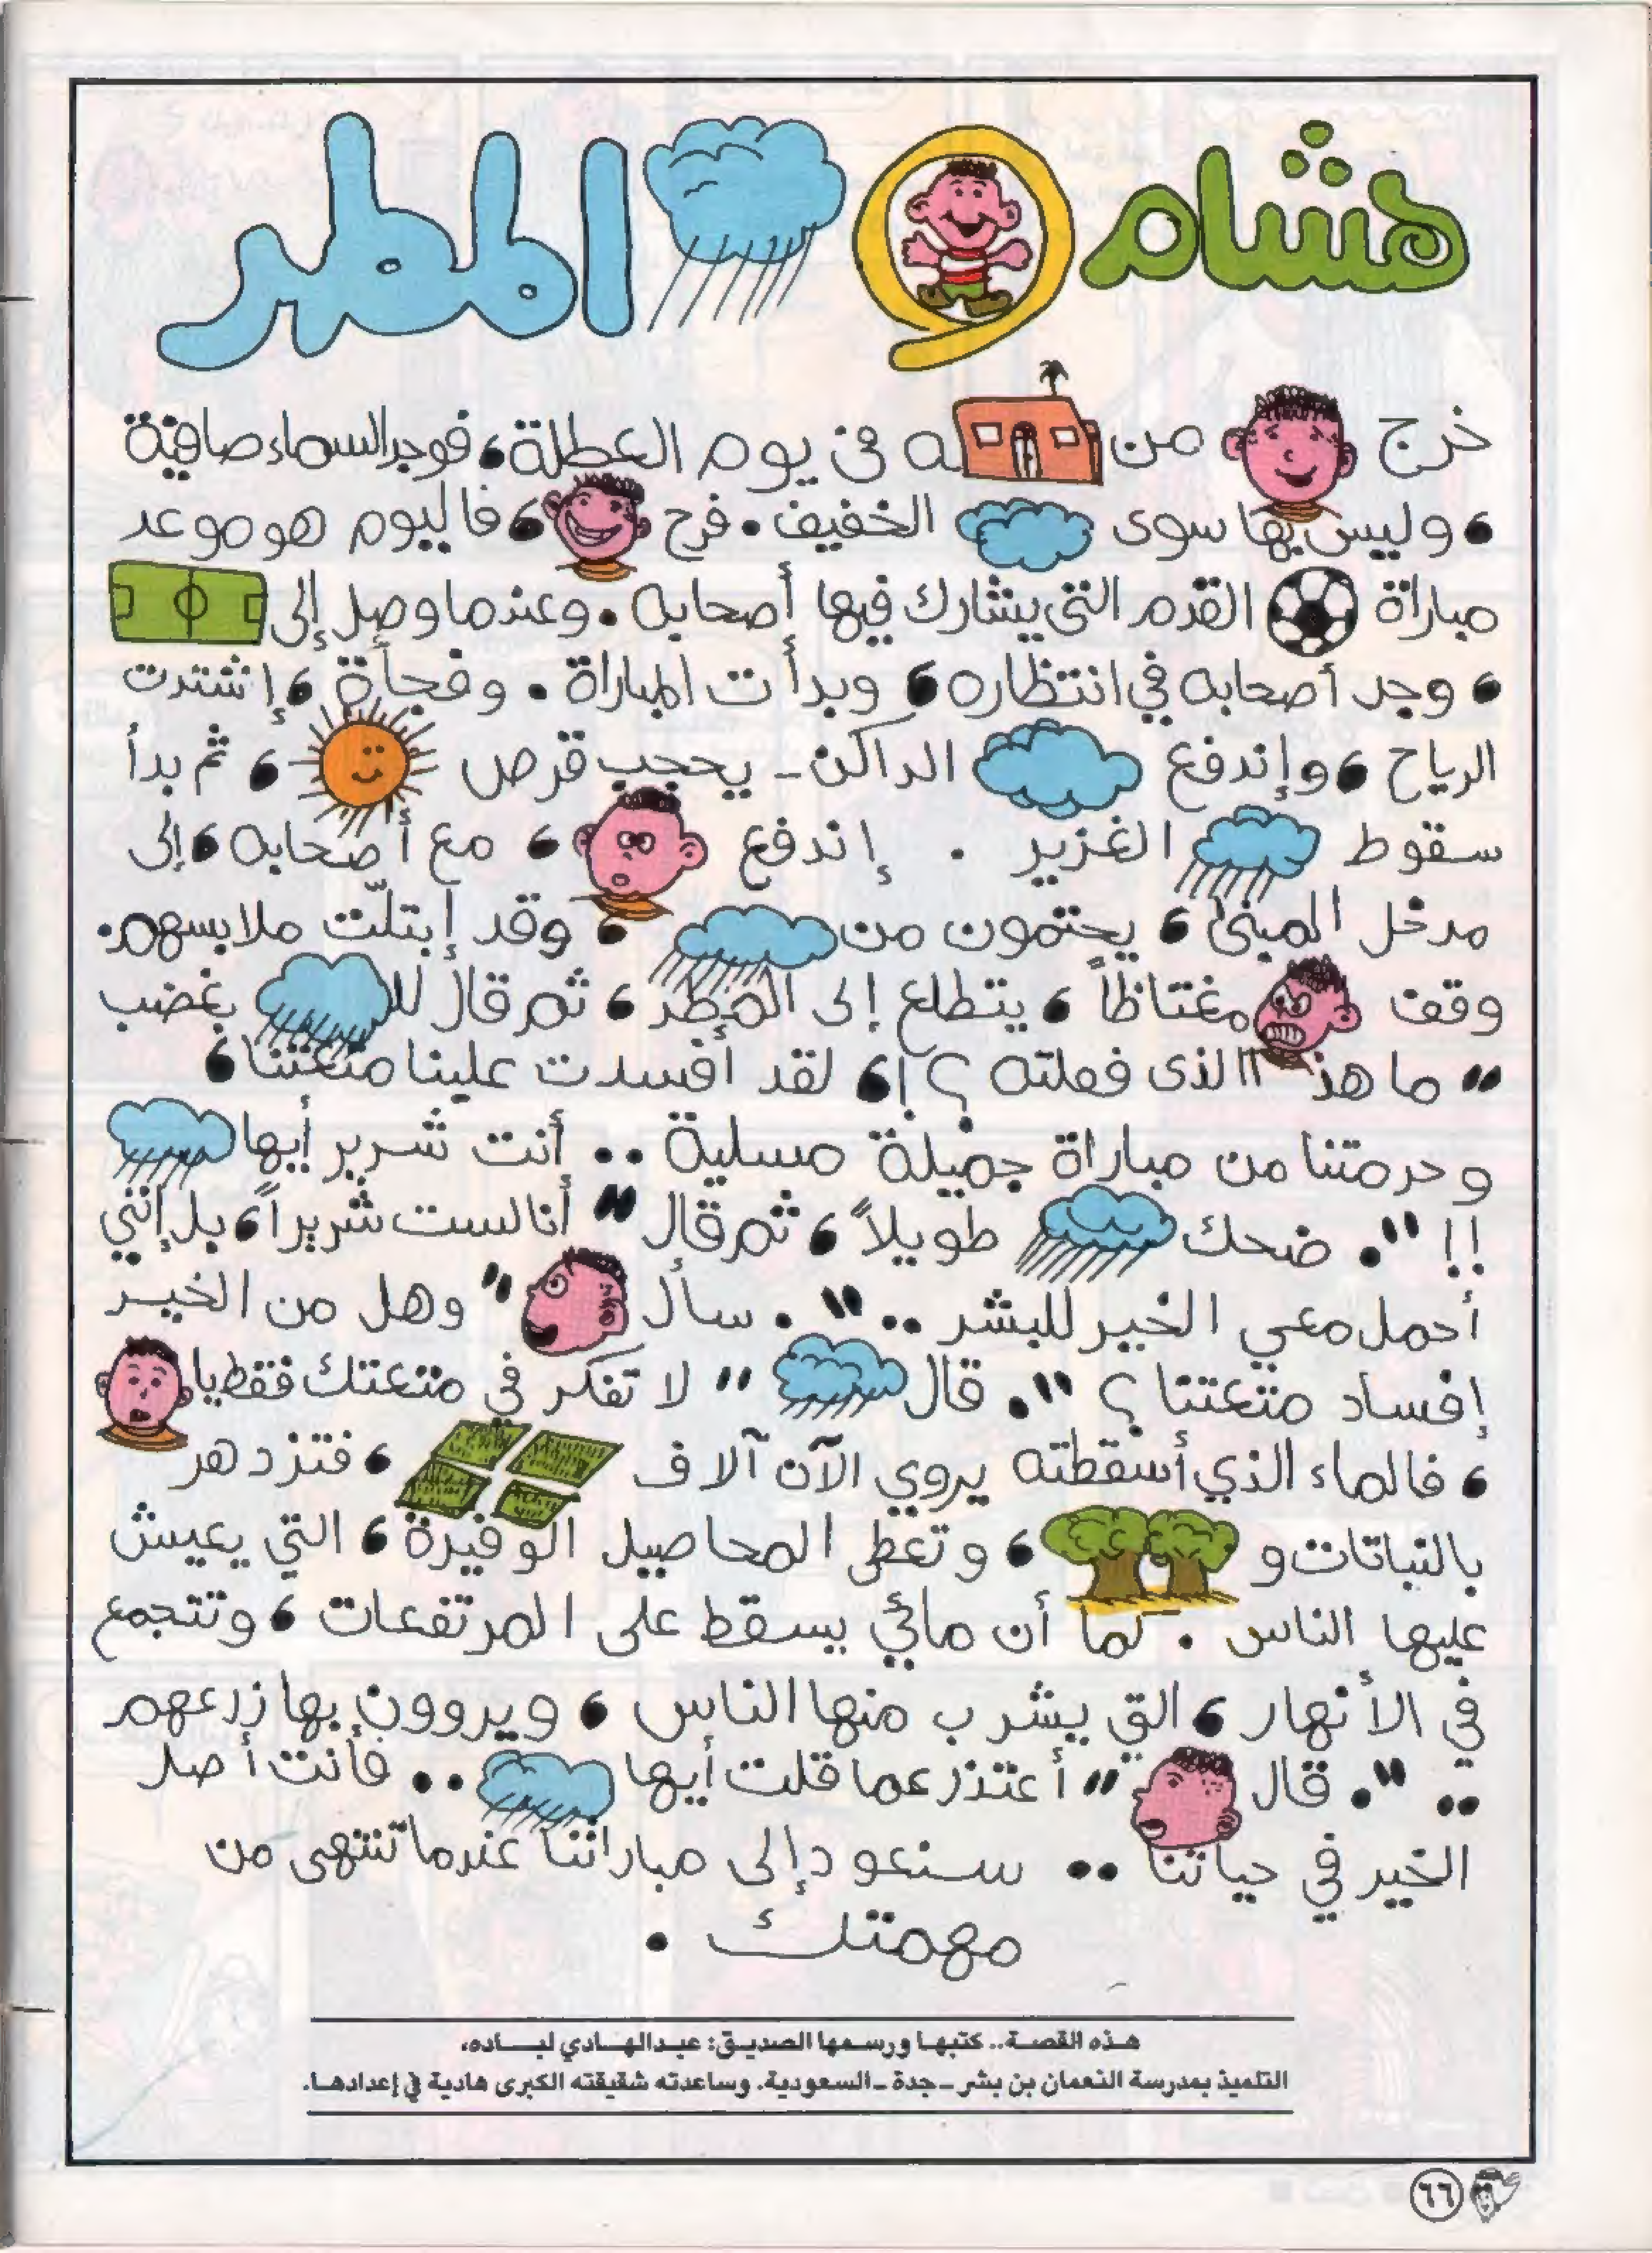 هشام و المطر
خرج من ـه فى يوم العطلة، فوجد السماء صافية
، وليس بها سوى الخفيف. فرح ، فاليوم هو موعد
مباراة القدم التي يشارك فيها أصحابه. وعندما وصل إلى
، وجد أصحابه في انتظاره، وبدأت المباراة. وفجأة، إشتدت
الرياح، وإندفع الداكن- يحجب قرص ، ثم بدأ
سقوط الغزير . إندفع ، مع أصحابه، إلى
مدخل المبنى، يحتمون من ، وقد إبتلّت ملابسهم.
وقف مغتاظاً، يتطلع إلى المطر، ثم قال للـ بغضب
" ما هذا الذى فعلته؟!، لقد أفسدت علينا متعتنا،
وحرمتنا من مباراة جميلة مسلية .. أنت شرير أيها
!! ". ضحك طويلاً، ثم قال " أنا لست شريراً، بل إنني
أحمل معي الخير للبشر .. ". سأل " وهل من الخير
إفساد متعتنا؟ ". قال " لا تفكر في متعتك فقط يا
، فالماء الذي أسقطته يروي الآن آلاف ، فتزدهر
بالنباتات و ، وتعطى المحاصيل الوفيرة، التي يعيش
عليها الناس . كما أن مائي يسقط على المرتفعات، وتتجمع
في الأنهار، التي يشرب منها الناس، ويروون بها زرعهم
.. ". قال " أعتذر عما قلت أيها .. فأنت أصل
الخير في حياتنا .. سنعود إلى مباراتنا عندما تنتهى من
مهمتك .
هذه القصة.. كتبها ورسمها الصديق: عبدالهادي لباده،
التلميذ بمدرسة النعمان بن بشر ـ جدة ـ السعودية. وساعدته شقيقته الكبرى هادية في إعدادها.
٦٦